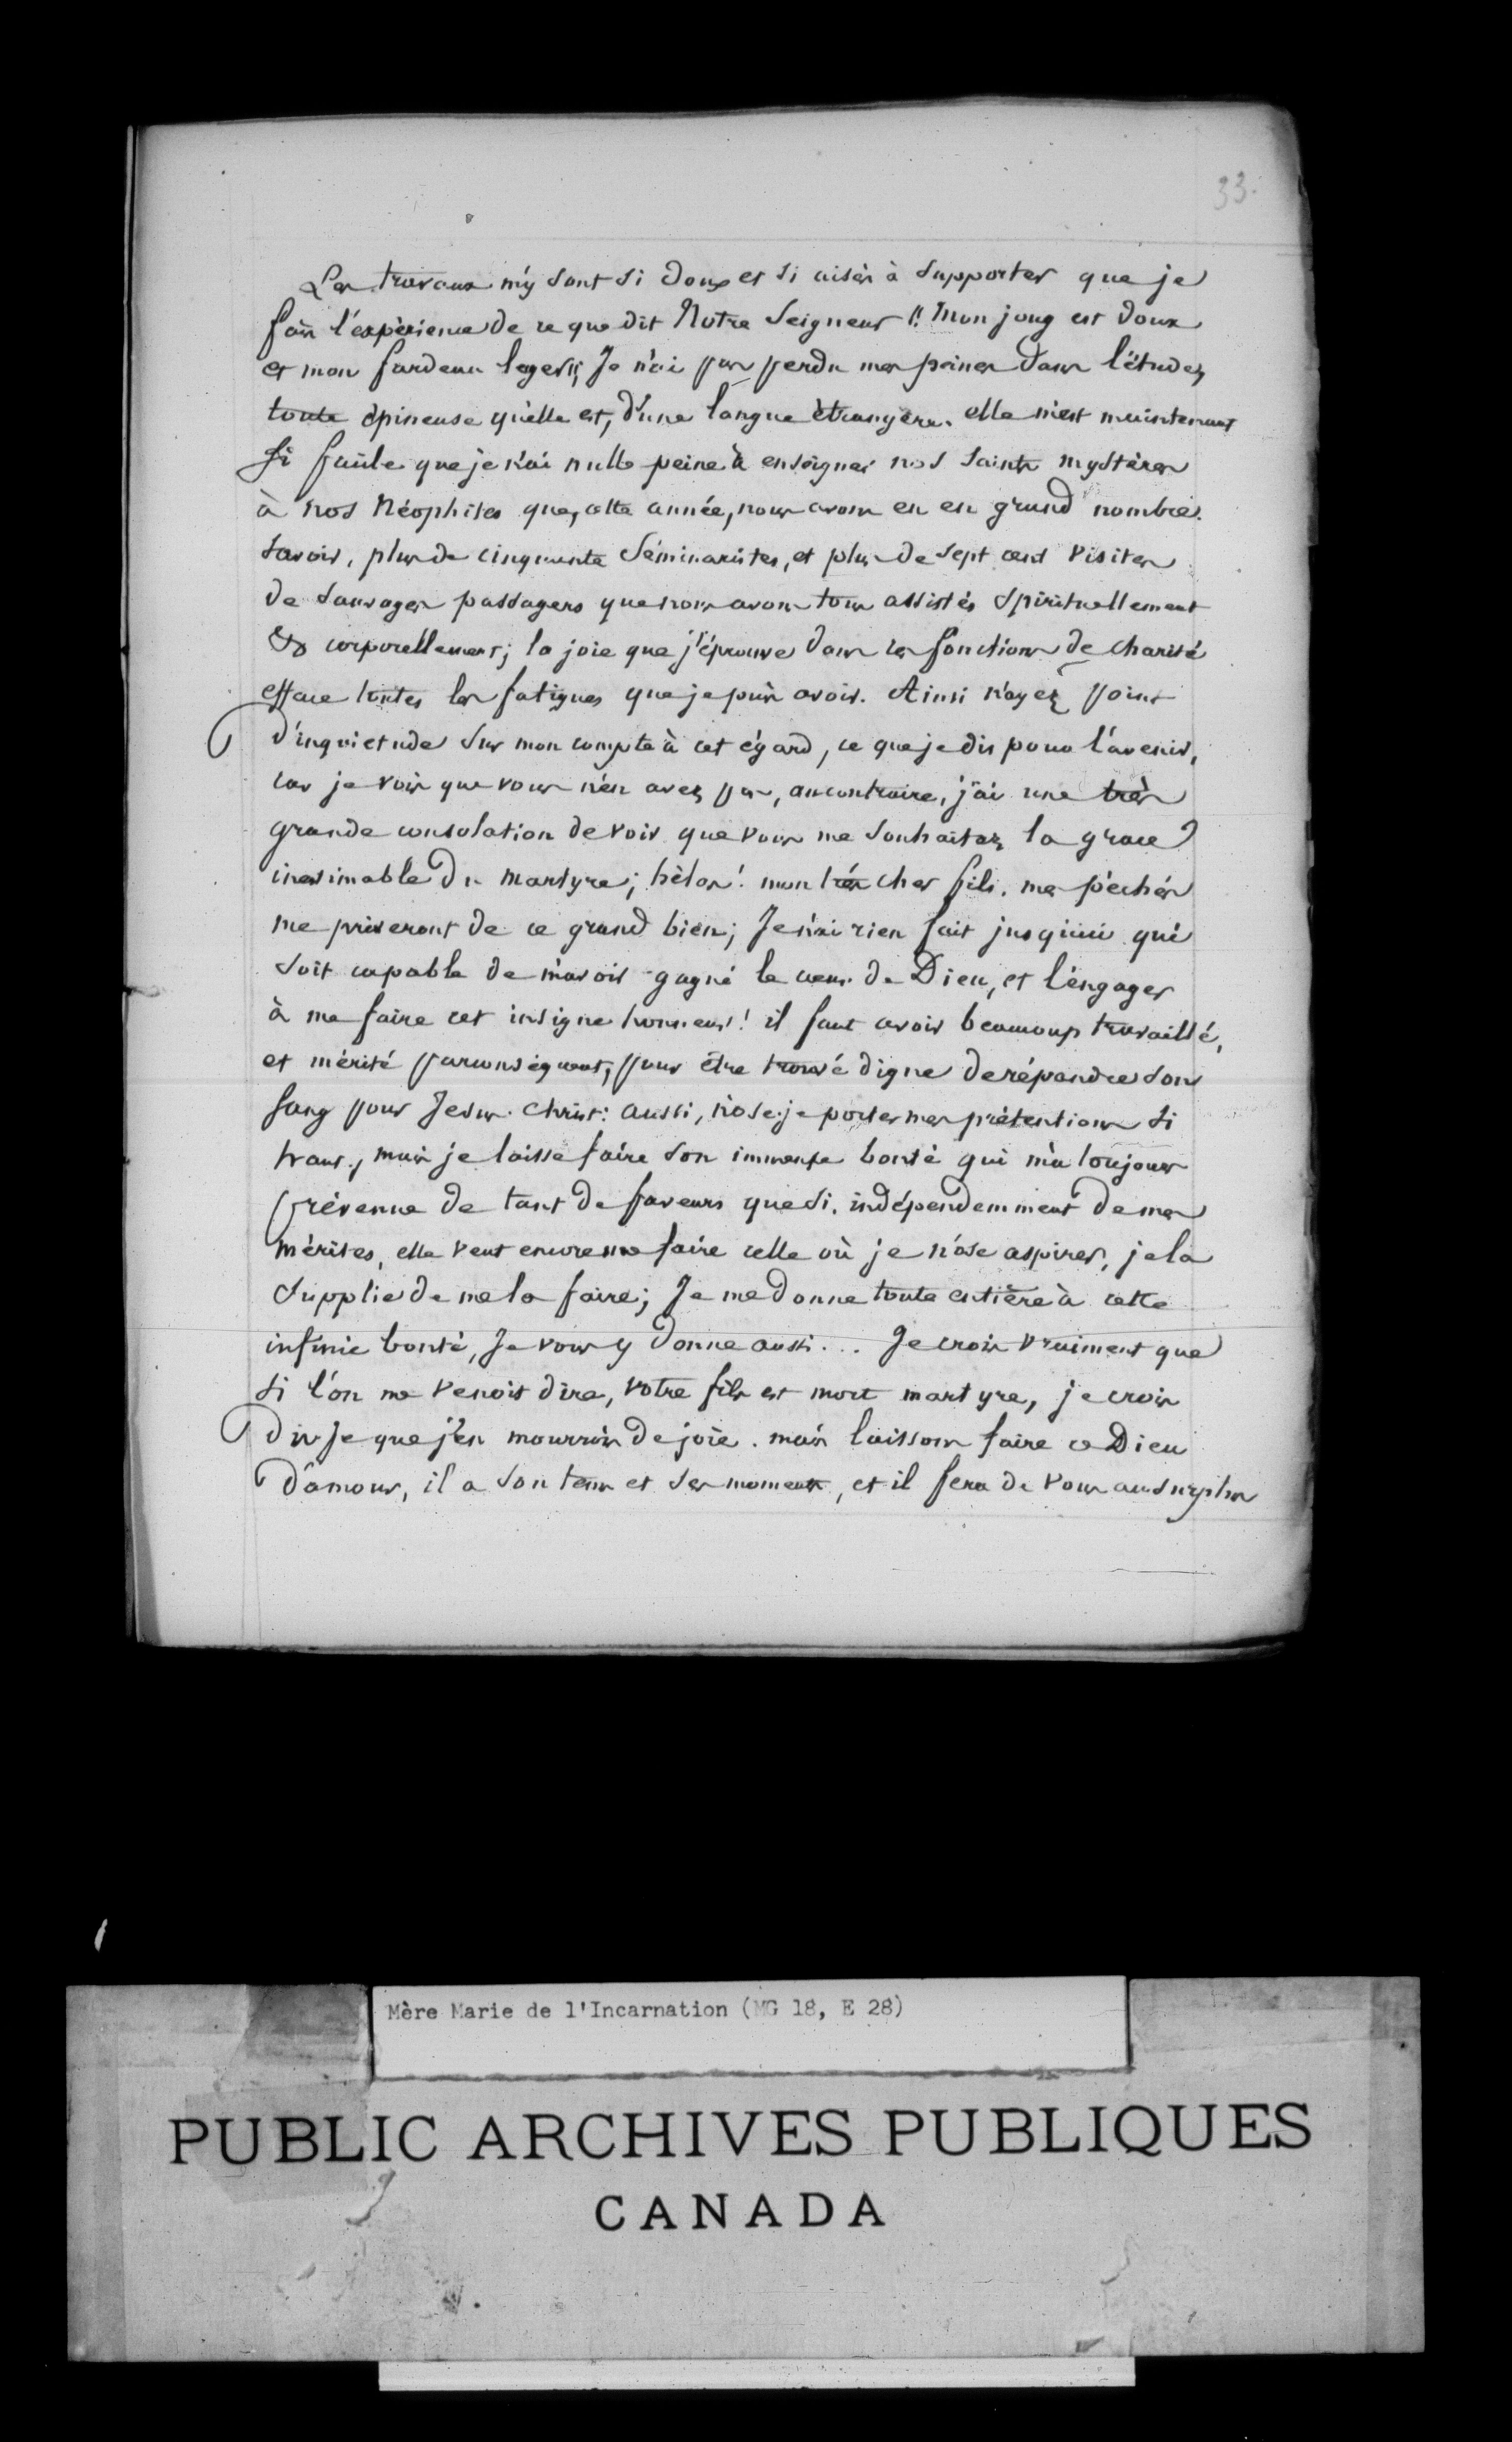 33.
Les travaux m'y sont si doux et si aisés à supporter que je
fais l'expérience de ce que dit Notre Seigneur " Mon joug est doux
et mon fardeau leger "; Je n'ai pas perdu mes peines dans l'étude,
toute épineuse qu'elle est, d'une langue étrangère. elle m'est maintenant
si facile que je n'ai nulle peine à enseigner nos saints mystères
à nos Néophites que, cette année, nous avons eu en grand nombre.
savoir, plus de cinquante Séminaristes, et plus de sept cent visites
de sauvages passagers que nous avons tous assistés spirituellement
& corporellement; la joie que j'éprouve dans ces fonctions de charité
efface toutes les fatigues que je puis avoir. Ainsi n'ayez point
d'inquietude sur mon compte à cet égard, ce que je dis pour l'avenir,
car je vois que vous n'en avez pas, au contraire, j'ai une très
grande consolation de voir que vous me souhaitez la grace
inestimable du martyre; hélas! mon très cher fils. mes péchés
me priveront de ce grand bien; Je n'ai rien fait jusqu'ici qui
soit capable de m'avoir gagné le coeur de Dieu, et l'engager
à me faire cet insigne honneur! il faut avoir beaucoup travaillé,
et mérité parconséquent, pour être trouvé digne de répandre son
sang pour Jesus-Christ: aussi, n'ose-je porter mes prétentions si
haut, mais je laisse faire son immense bonté qui m'a toujours
prévenue de tant de faveurs que si, indépendemment de mes
mérites, elle veut encore me faire celle où je n'ose aspirer, je la
supplie de me la faire; Je me donne toute entière à cette
infinie bonté, Je vous y donne aussi... Je crois vraiment que
si l'on me venoit dire, votre fils est mort martyre, je crois
dis-je que j'en mourrois de joie. mais laissons faire ce Dieu
d'amour, il a son tems et ses moments, et il fera de vous au surplus
Mère Marie de l'Incarnation (MG 18, E 28)
PUBLIC ARCHIVES PUBLIQUES
CANADA